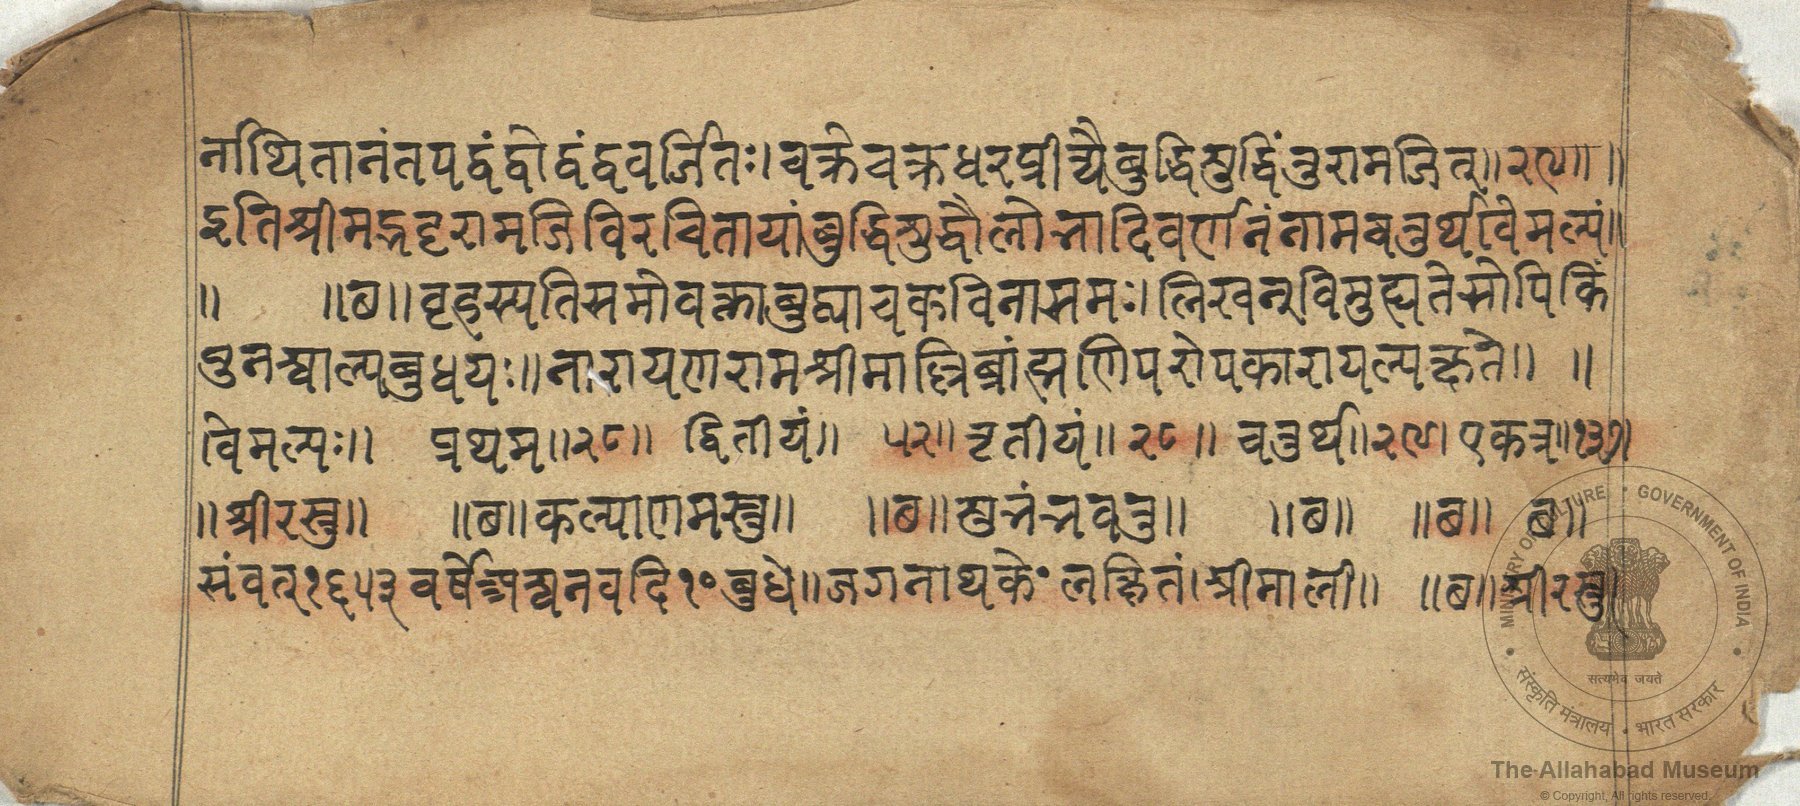 नाथितानंतपद्वंद्वोद्वंद्ववर्जितः। चक्रेचक्रधरप्रीत्यैबुद्धिशुद्धिंतुरामजित्॥२९॥ ॥
इतिश्रीमद्भट्टरामजिविरचितायांबुद्धिशुद्धौलोभादिवर्णनंनामचतुर्थवैमल्यं॥
॥ ॥ब॥वृहस्पतिसमोवक्ताबुद्ध्याचकविनासमः। लिखन्विमुह्यतेसोपिकिं
पुनश्चाल्पबुधयः॥नारायणरामश्रीमाद्भिर्ब्रांह्मणिपरोपकारायल्पकृते॥ ॥
वैमल्यः॥ प्रथम॥२८॥ द्वितीयं॥ ५२॥तृतीयं॥२८॥ चतुर्थ॥२९॥एकत्र॥१३७॥
॥श्रीरस्तु॥ ॥ब॥कल्याणमस्तु॥ ॥ब॥शुभंभवतु॥ ॥ब॥ ॥ब॥ ब॥
संवत्१६५३वर्षेआश्वनवदि१०बुधे॥जगनाथकेन लखितं।श्रीमाली॥ ॥ब॥श्रीरस्तु॥
MINISTRY OF CULTURE • GOVERNMENT OF INDIA
सत्यमेव जयते
संस्कृति मंत्रालय • भारत सरकार
The Allahabad Museum
© Copyright, All rights reserved.